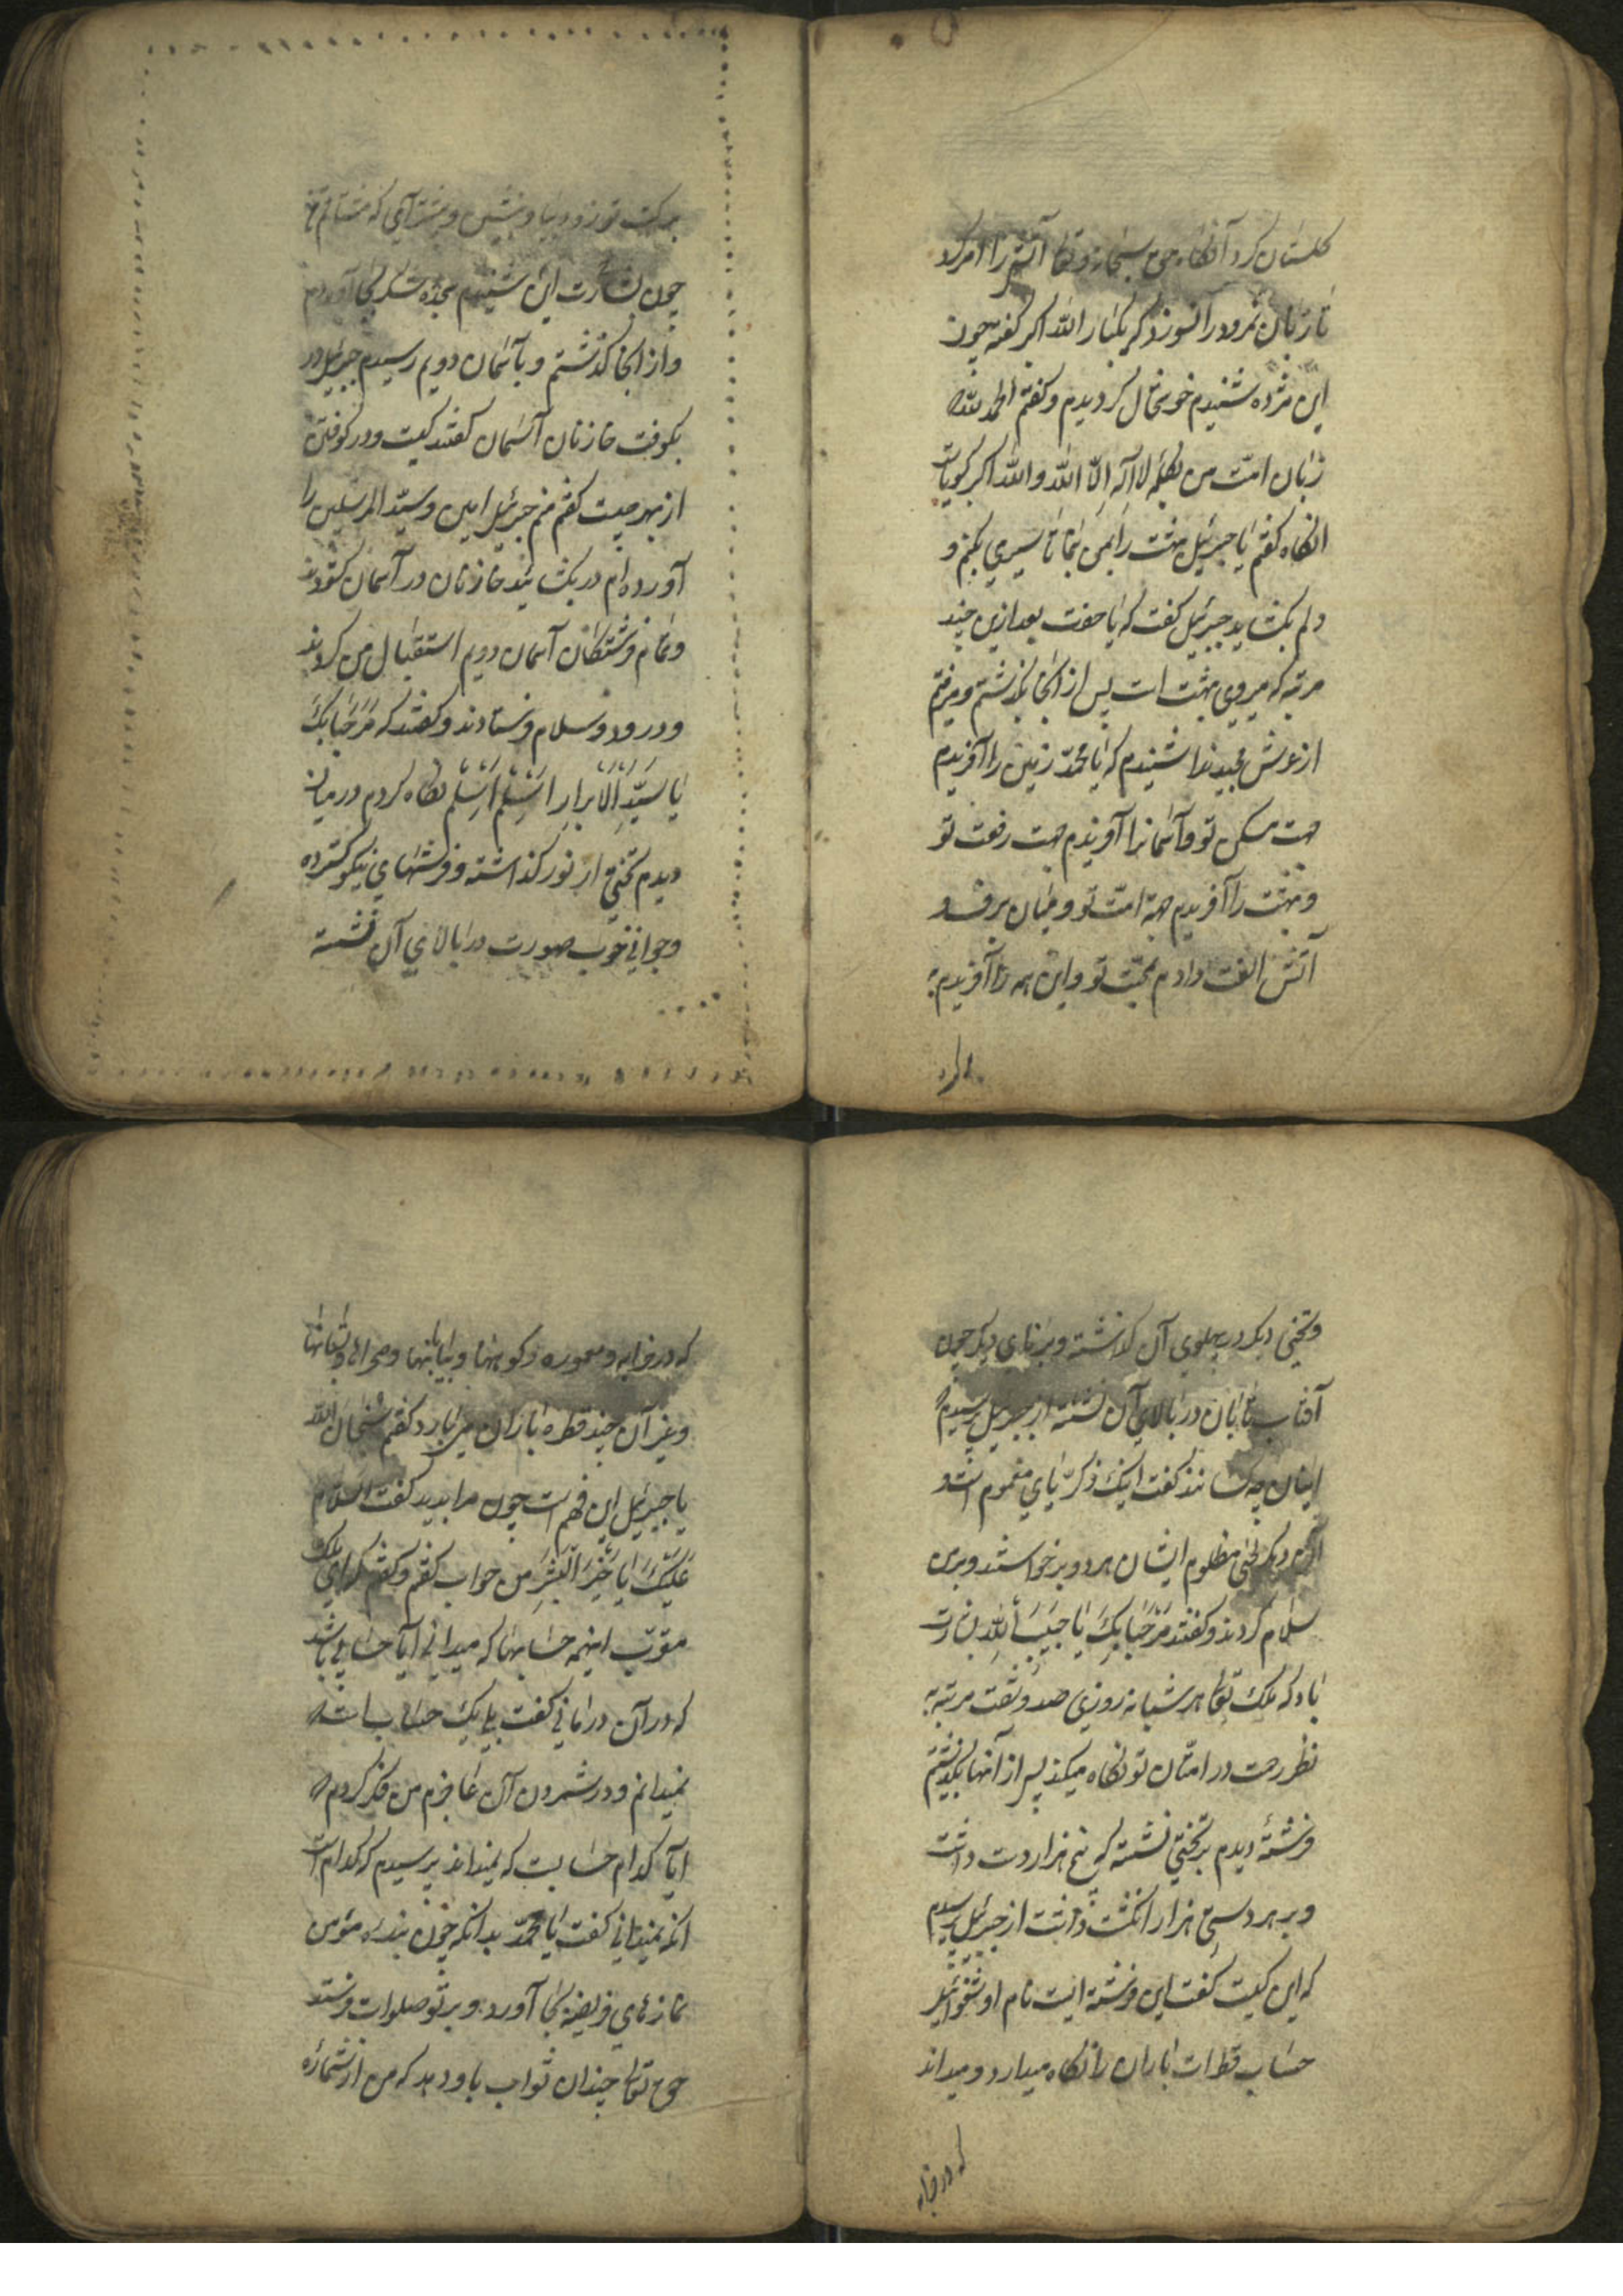 کلستان کرد آنکاه حق سبحانه و تعا آتش را امر کرد
تا زبان نمرود را نسوزد که یکبار الله اکبر کفته چون
این مژده شنیدم خوشحال کردیدم و کفتم الحمد لله
زبان امت من بکلمه لا اله الا الله والله اکبر کویاست
انکاه کفتم یا جبرئیل بهشت را بمن بنما تا سیری بکنم و
دلم بکشاید جبرئیل کفت که یا حضرت بعد ازین چند
مرتبه که میروی بهشت است پس از انجا بکذشتم و میرفتم
از عرش مجید ندا شنیدم که یا محمد زمین را آفریدم
جهت مسکن تو و آسمانرا آفریدم جهت رفعت تو
و بهشت را آفریدم جهة امت تو و میان برف و
آتش الفت دادم بمحبت تو و این همه را آفریدم به
برکت تو زود بیا و بشین و بشتاب که مشتاقم
چون بشارت این شنیدم سجده شکر بجا آوردم
و از انجا کذشتم و بآسمان دویم رسیدم جبرئیل در
بکوفت خازنان آسمان کفتند کیست و در کوفتن
از بهر چیست کفتم منم جبرئیل امین و سید المرسلین را
آورده ام در بکشائید خازنان در آسمان کشودند
و تمام فرشتکان آسمان دویم استقبال من کردند
و درود و سلام فرستادند و کفتند که مَرْحَبا بِکَ
یا سَیّدَ اَلاَبرارِ نکاه کردم در میان
دیدم تختی از نور کذاشته و فرشهای نیکو کسترده
و جوانی خوب صورت در بالای آن نشسته
و تختی دیکر در پهلوی آن کذاشته و برنای دیکر چون
آفتاب تابان در بالای آن نشسته از جبرئیل پرسیدم
اینان چه کسانند کفت اینک ذکریای مغموم است و
آن دیکر یحیی مظلوم ایشان هر دو برخواستند و بر من
سلام کردند و کفتند مَرْحَبا بِکَ یا حَبیبَ اَللهِ بشارت
باد که ملک تعا هر شبانه روزی صد و شصت مرتبه به
نظر رحمت در امتان تو نکاه میکند پس از آنها بکذشتم
فرشتهٔ دیدم بر تختی نشسته که پنج هزار دست داشت
و بر هر دستی هزار انکشت داشت از جبرئیل پرسیدم
که این کیست کفت این فرشته ایست نام او
حساب قطرات باران را نکاه میدارد و میداند
که در خرابه
که در خرابه و معموره و کوهها و بیابانها و صحراها
و غیر آن چند قطره باران میبارد کفتم سبحان الله
یا جبرئیل این فهم است چون مرا بدید کفت السلام
عَلَیْکَ یا خَیْرَ الْبَشَرِ من جواب کفتم و کفتم که ای ملک
مقرّب اینهمه حسابها که میدانی آیا حسابی باشد
که در آن درمانی کفت بلی یک حساب است
نمیدانم و در شمردن آن عاجزم من فکر کردم
آیا کدام حسابست که نمیداند پرسیدم که کدام است
انکه نمیدانی کفت یا محمد بدانکه چون بندهٔ مؤمن
نمازهای فریضه بجا آورد و بر تو صلوات فرستد
حق تعالی چندان ثواب باو دهد که من از شمارهٔ